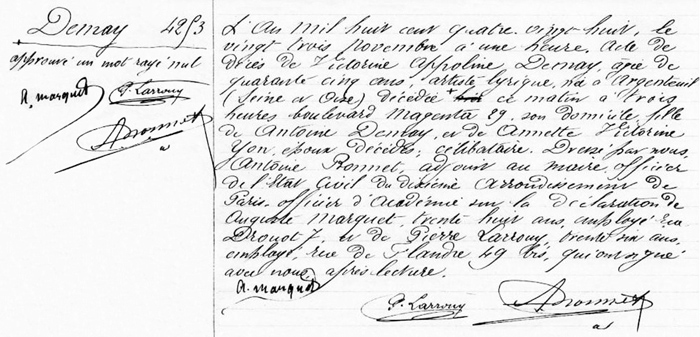 Demay 4253
approuvé un mot rayé nul
A. marquet P. Larrouy
ABonnet
L'An mil huit cent quatre vingt huit, le
vingt trois Novembre à une heure, Acte de
décès de Victorine Appoline Demay, agée de
quarante cinq ans, artiste lyrique, née à Argenteuil
(Seine et Oise) décédée + ce matin à trois
heures boulevard Magenta 29, son domicile, fille
de Antoine Demay, et de Annette Victorine
Yon, époux décédés, célibataire. Dressé par nous,
Antoine Bonnet, adjoint au maire, officier
de l'Etat Civil du dixième Arrondissement de
Paris, officier d'Académie sur la déclaration de
Auguste Marquet, trente huit ans, employé rue
Drouot 7, et de Pierre Larrouy, trente six ans,
employé, rue de Flandre 49 bis, qui ont signé
avec nous après lecture.
A. marquet
P. Larrouy ABonnet